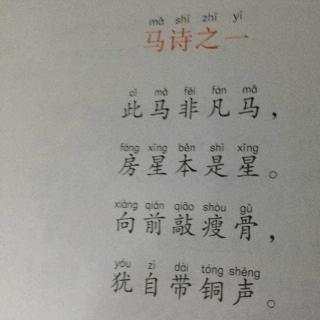 mǎ shī zhī yī
马诗之一
cǐ mǎ fēi fán mǎ
此马非凡马，
fáng xīng běn shì xīng
房星本是星。
xiàng qián qiāo shòu gǔ
向前敲瘦骨，
yóu zì dài tóng shēng
犹自带铜声。